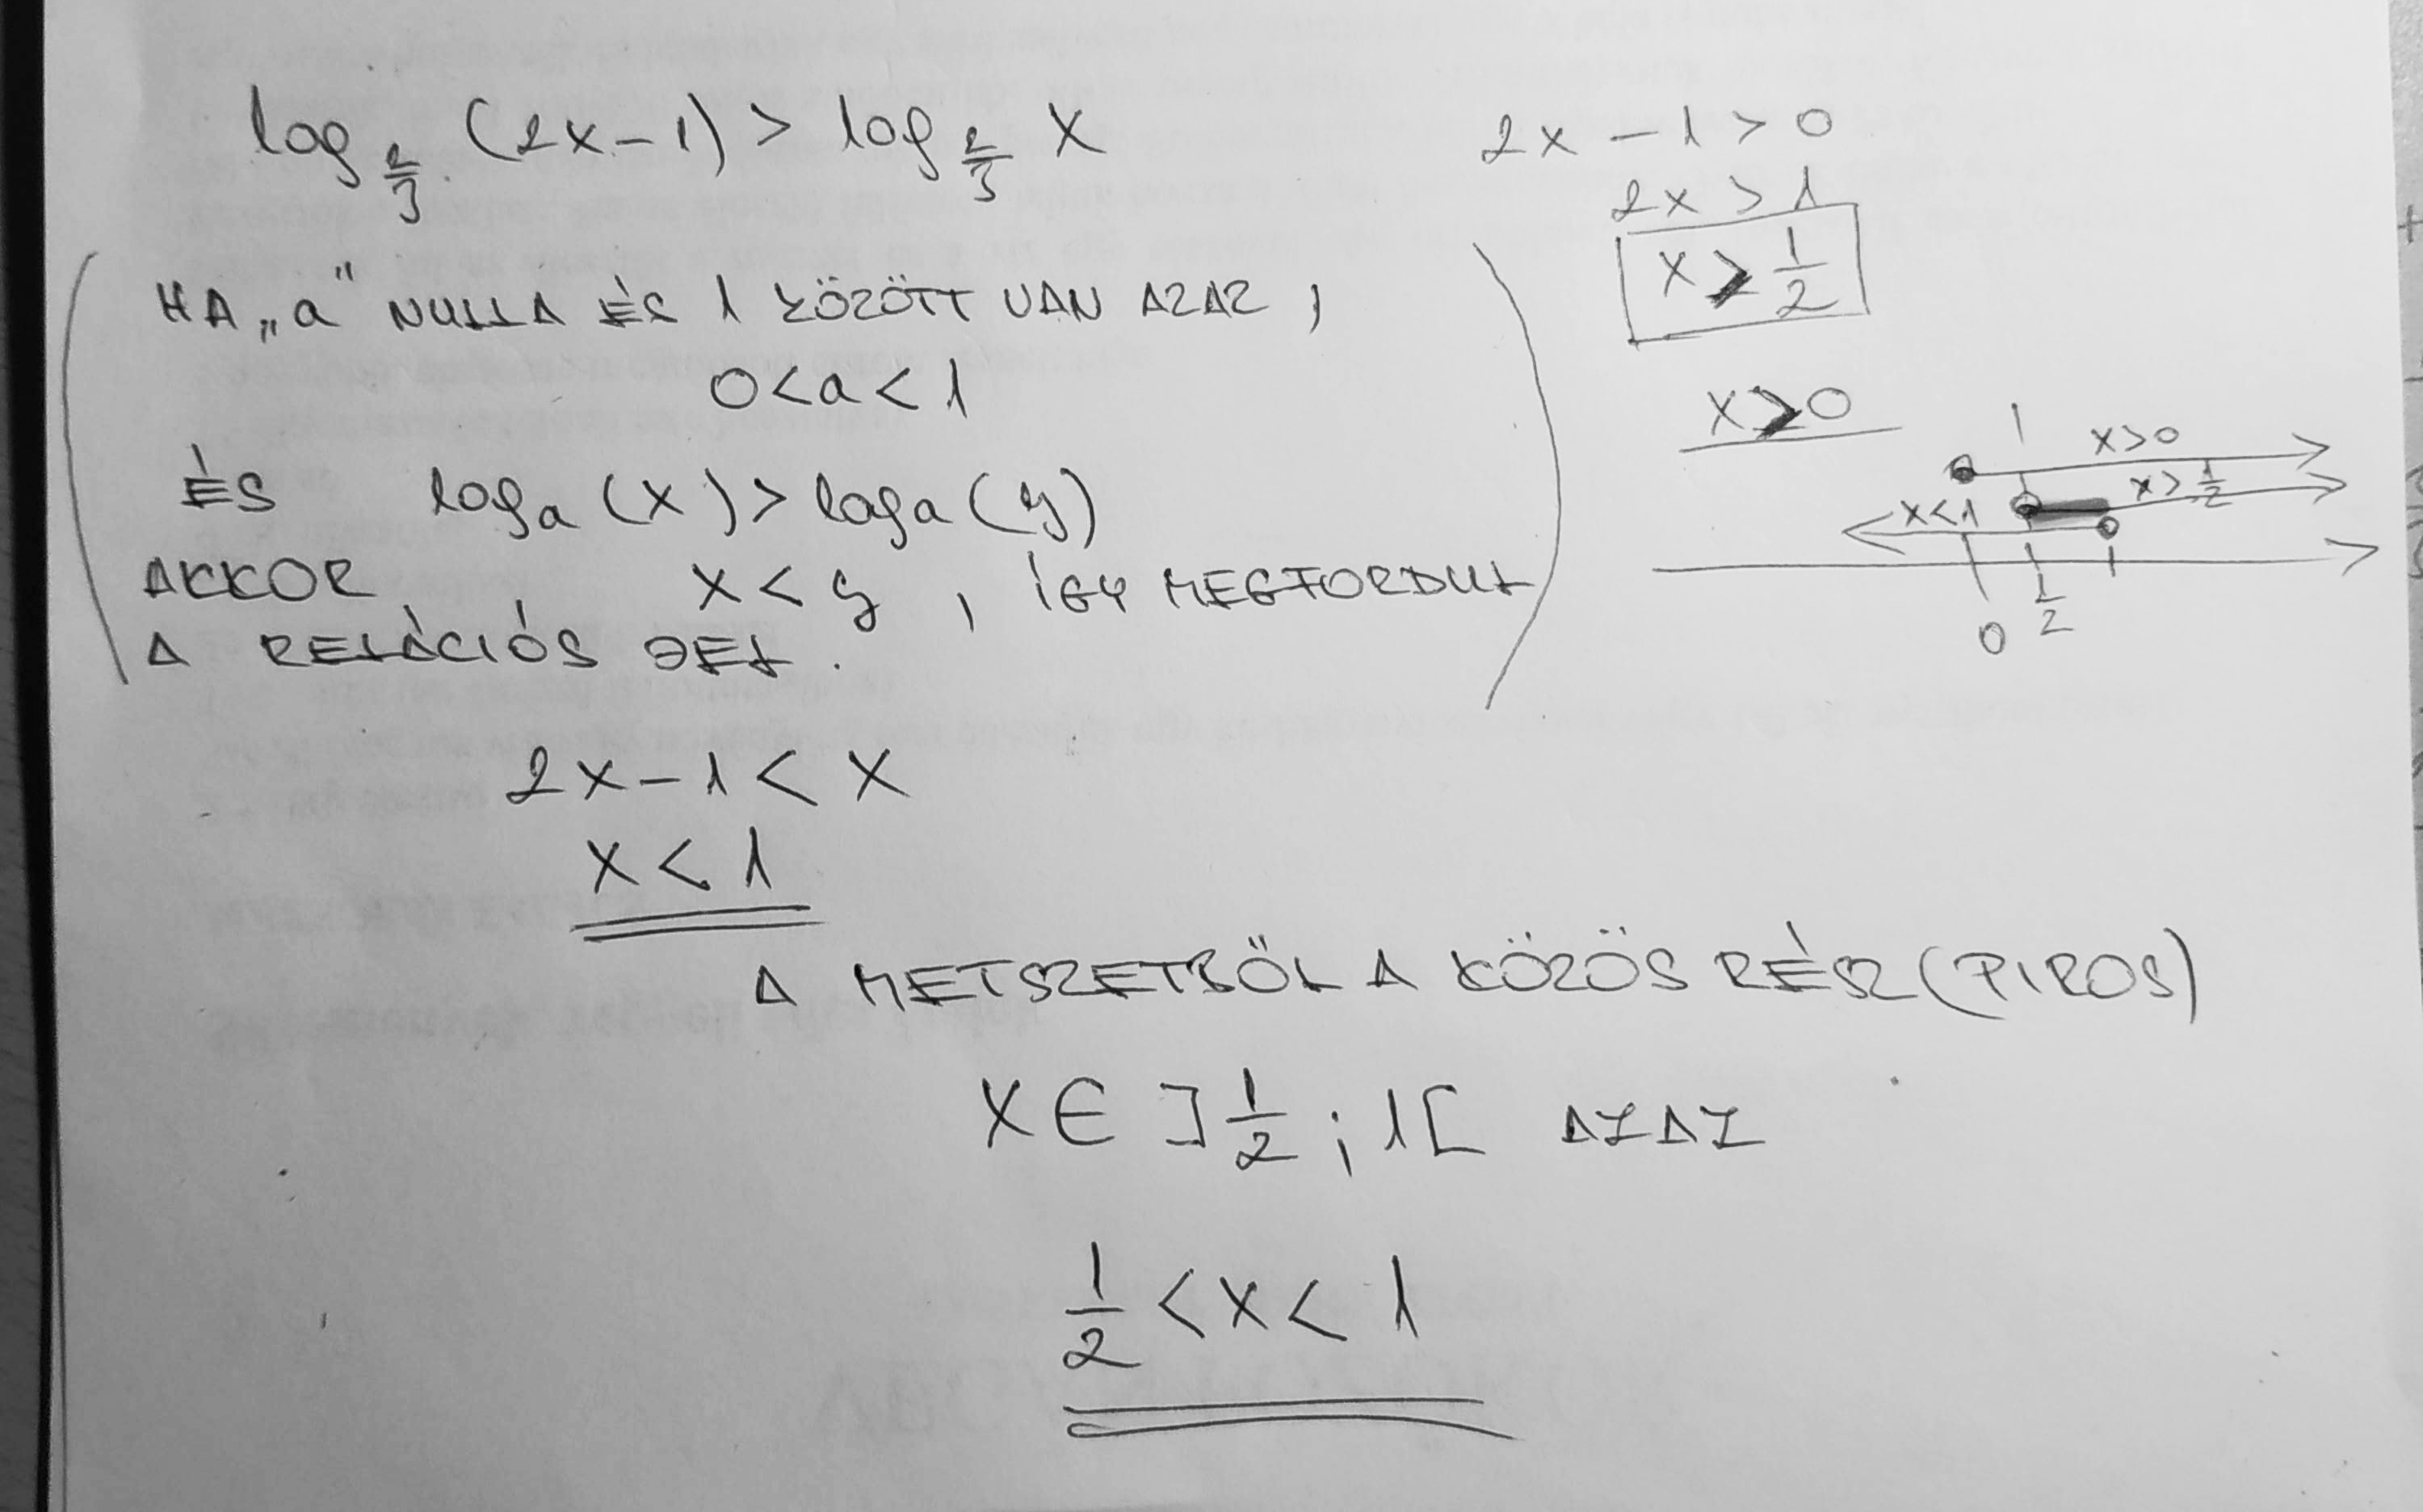 log 2/3 (2x-1) > log 2/3 x
2x - 1 > 0
2x > 1
x > 1/2
x > 0
HA „a" NULLA ÉS 1 KÖZÖTT VAN AZAZ,
0<a<1
ÉS log a (x) > log a (y)
AKKOR, x < y, ÍGY MEGFORDUL
A RELÁCIÓS JEL.
x>0
x > 1/2
x<1
0 1/2
2x-1 < x
x < 1
A METSZETBŐL A KÖZÖS RÉSZ (PIROS)
x ∈ ]1/2 ; 1[ AZAZ
1/2 < x < 1